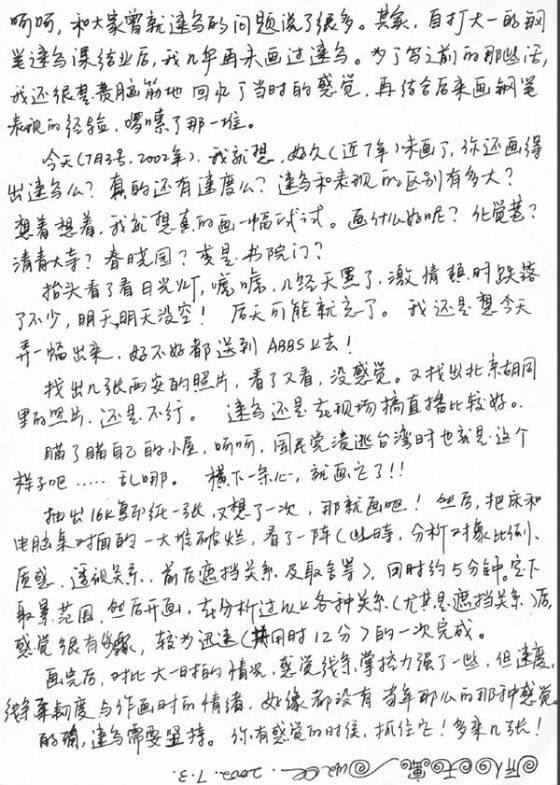 呵呵，和大家曾就速写的问题说了很多。其实，自打大一的钢
笔速写课结业后，我几乎再未画过速写。为了写之前的那些话，
我还很是费脑筋地回忆了当时的感觉，再结合后来画钢笔
表现的经验，啰嗦了那一堆。
今天（7月3号，2002年），我就想，好久（近7年）未画了，你还画得
出速写么？真的还有速度么？速写和表现的区别有多大？
想着想着，我就想真的画一幅试试。画什么好呢？化觉巷？
清真大寺？春晓园？或是书院门？
抬头看了看日光灯，唬唬，几经天黑了，激情想时跌落
了不少，明天，明天没空！后天可能就忘了。我还是想今天
弄一幅出来，好不好都送到ABBS上去！
找出几张西安的照片，看了又看，没感觉。又找出北京胡同
里的照片，还是不行。速写还是在现场搞直播比较好。
瞄了瞄自己的小屋，呵呵，国民党溃逃台湾时也就是这个
样子吧……乱哪。横下一条心，就画它了！！
抽出16K复印纸一张，又想了一次，那就画吧！然后，把床和
电脑桌对面的一大堆破烂，看了一阵（此时，分析对象比例、
质感、透视关系、前后遮挡关系及取舍等），同时约5分钟。定下
取景范围，然后开画，在分析过以上各种关系（尤其是遮挡关系）后，
感觉很有，较为迅速（共用时12分）的一次完成。
画完后，对比大一时的情况，感觉线条掌控力强了一些，但速度，
线条与作画时的情绪，好像都没有当年那么的那种感觉。
的确，速写需要坚持。你有感觉的时候，抓住它！多来几张！
2002.7.3.